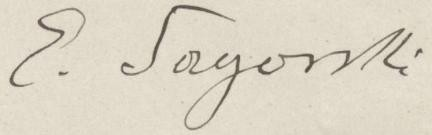 E. Sagorski